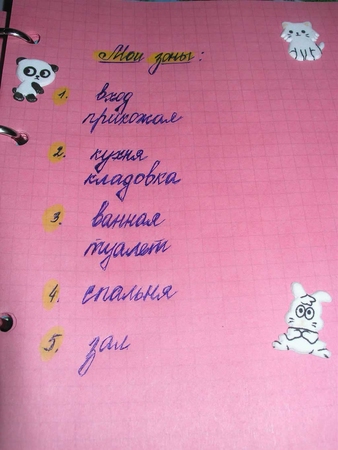 Мои зоны:
1. вход
прихожая
2. кухня
кладовка
3. ванная
туалет
4. спальня
5. зал